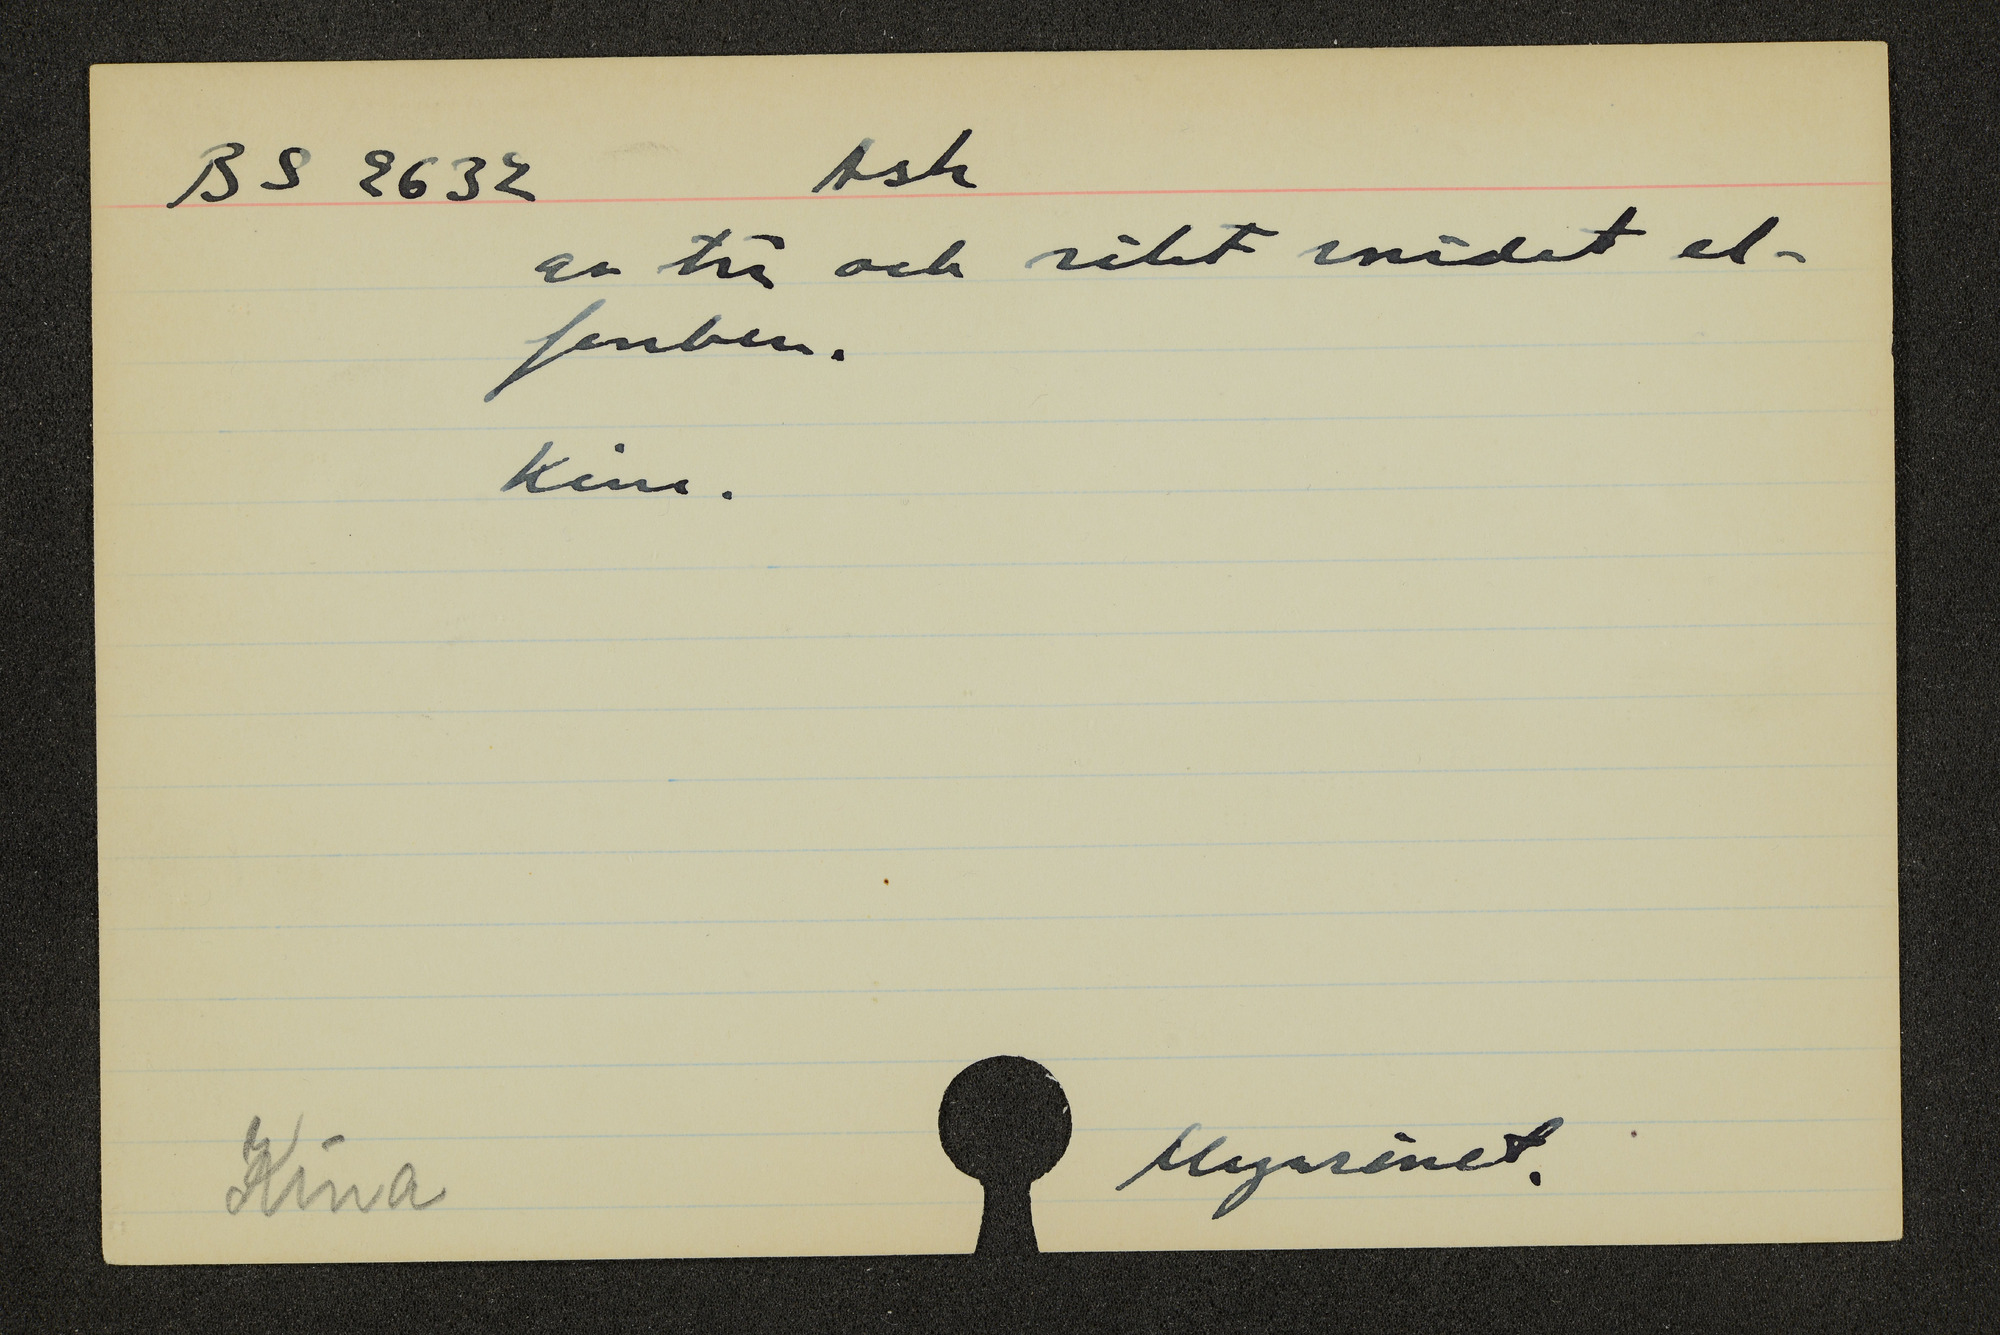 BS 2632 Ask
av trä och rikt snidat el-
fenben.
Kina.
Kina
Magasinet.